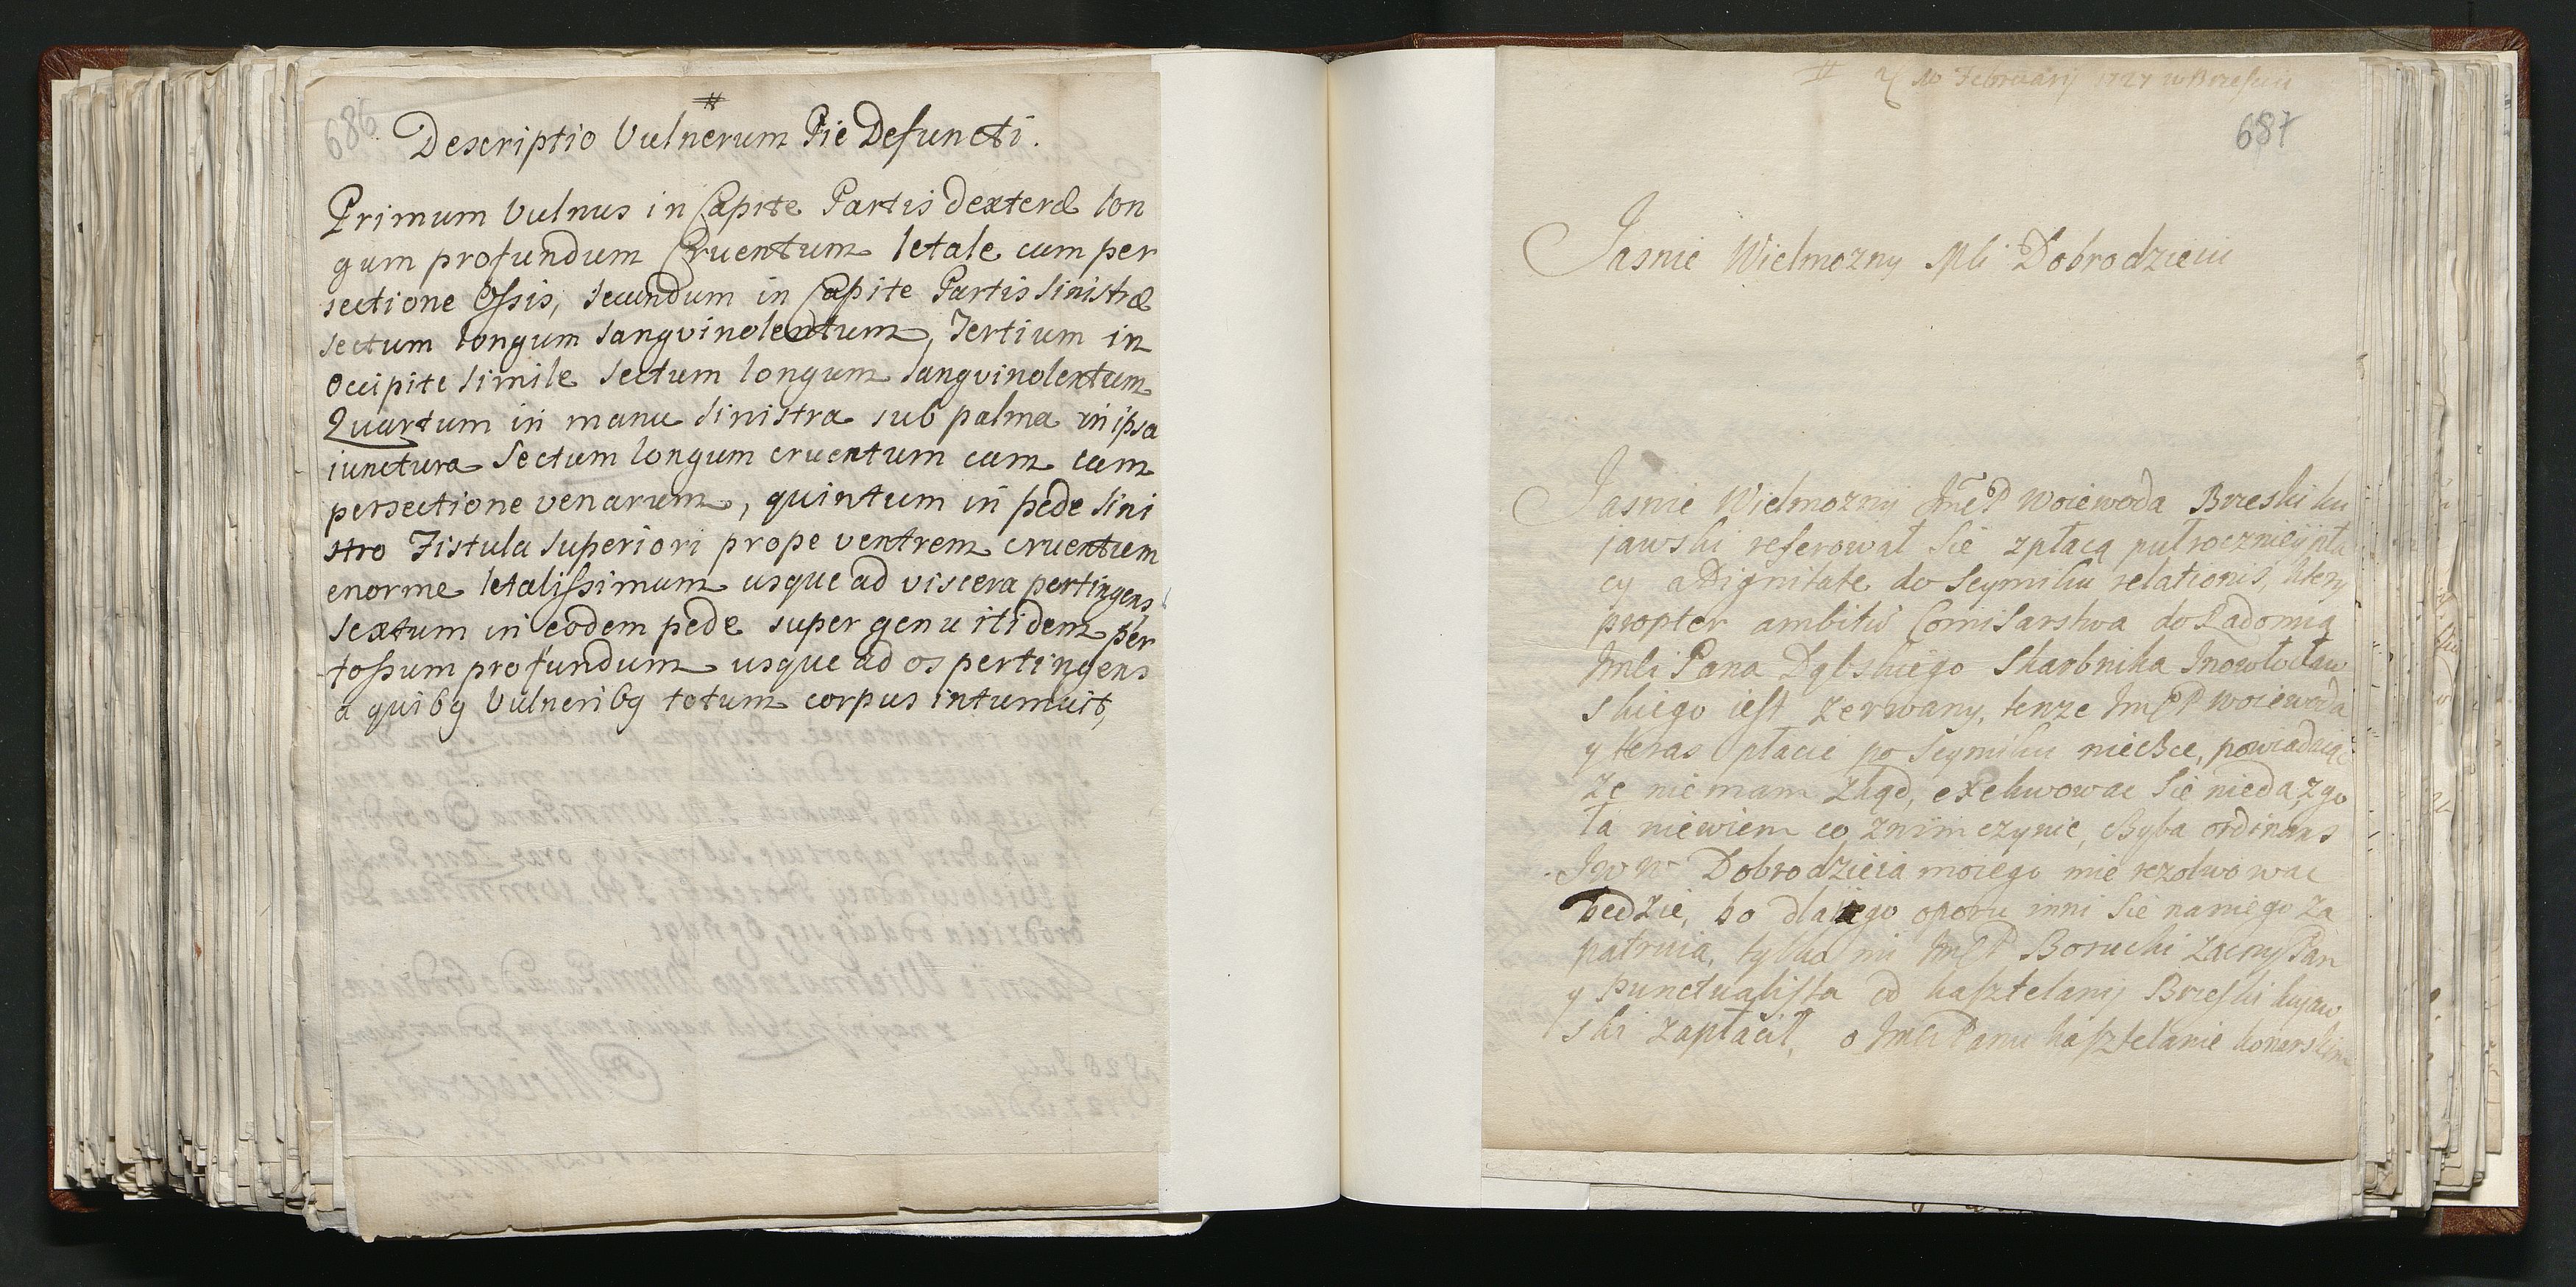 686
#
Descriptio Vulnerum Pie Defuncti.
Primum Vulnus in Capite Partis dexteræ lon
gum profundum Cruentum letale cum per
sectione Ossis, secundum in Capite Partis sinistræ
sectum longum sangvinolentum, Tertium in
occipite simile sectum longum sangvinolentum
Quartum in manu sinistra sub palma in ipsa
iunctura sectum longum cruentum cum cum
persectione venarum, quintum in pede sini
stro Fistula superiori prope ventrem cruentum
enorme letalissimum usque ad viscera pertingens
sextum in eodem pede super genu itidem per
tossum profundum usque ad os pertingens
a quibq Vulneribq totum corpus intumuit,
# 10 February 1727 w Brzesciu
687
Jasnie Wielmozny Mci Dobrodzieiu
Jasnie Wielmozny JmcP Woiewoda Brzeski ku
jawski referował sie z płacą pułroczniey pła
cy a Dignitate do Seymiku relationis, ktory
propter ambitu Comisarstwa do Radomia
Jmci Pana Dąbskiego Skarbnika Inowłocław
skiego iest zerwany, tenze JmcP woiewoda
y teras płacic po Seymiku niechce, powiadaiąc
ze nie mam zkąd, exekwowac sie nieda, zgo
ła niewiem co z nim czynic, chyba ordinans
JWW Dobrodzieia moiego mie rezolwowac
bedzie, bo dla iego oporu inni sie na niego za
patruia, tylko mi JmcP Borucki zacny Pan
y punctualista od kasztelanij Brzeski kujaw
ski zapłacił, o Jmci Panu kasztelanie konarskim